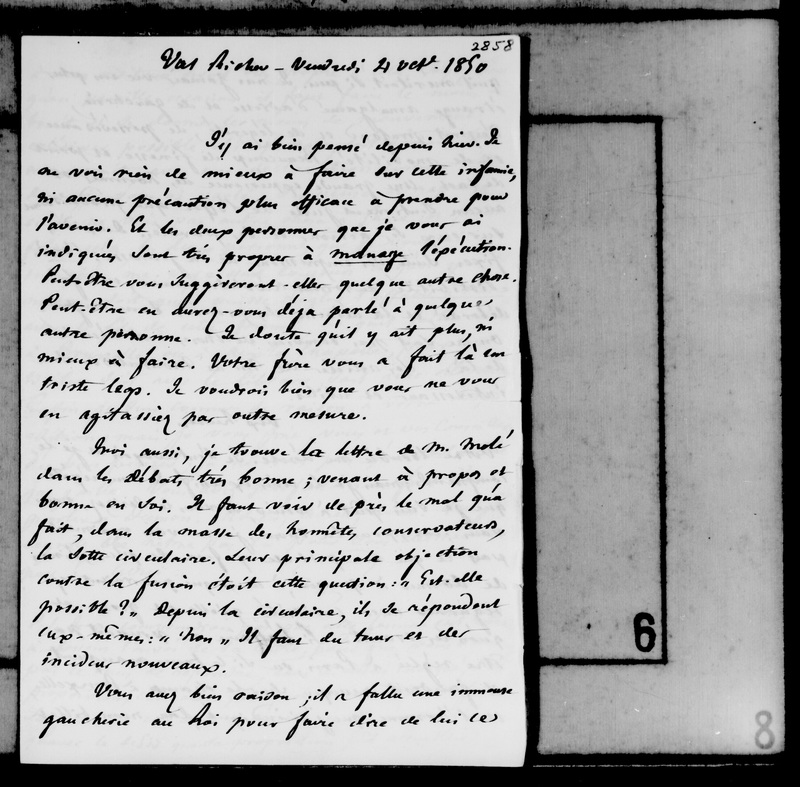 2858
Val Richer - Vendredi 4 Oct. 1850
J'y ai bien pensé depuis hier. Je
ne vois rien de mieux à faire sur cette infamie,
ni aucune précaution plus efficace à prendre pour
l'avenir. Et les deux personnes que je vous ai
indiquées sont très propres à menager l'exécution.
Peut-être vous suggèreront-elles quelque autre chose.
Peut-être en aurez-vous déja parlé à quelque
autre personne. Je doute qu'il y ait plus, ni
mieux à faire. Votre frère vous a fait là un
triste legs. Je voudrois bien que vous ne vous
en agitassiez pas outre mesure.
Moi aussi, je trouve la lettre de M. Molé
dans les Débats très bonne ; venant à propos et
bonne en soi. Il faut voir de près le mal qu'a
fait, dans la masse des honnêtes conservateurs,
la sotte circulaire. Leur principale objection
contre la fusion étoit cette question : " Est-elle
possible ? " Depuis la circulaire, ils se répondent
eux-mêmes : " Non " Il faut du tems et des
incidens nouveaux.
Vous avez bien raison ; il a fallu une immense
gaucherie au Roi pour faire dire de lui ce
6
8